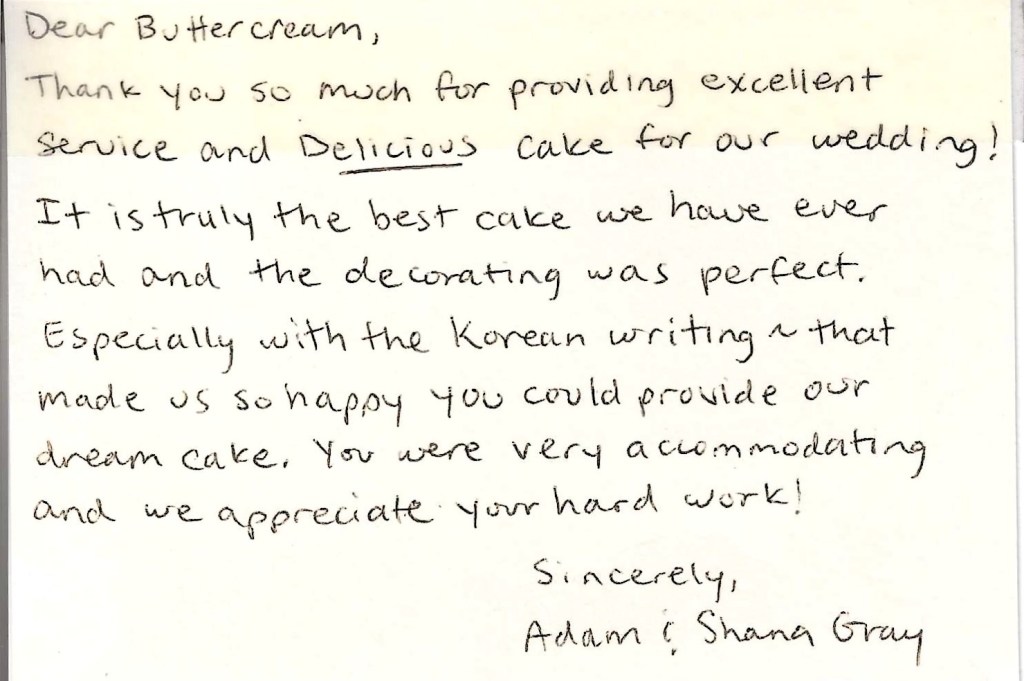 Dear Buttercream,
Thank you so much for providing excellent
service and Delicious cake for our wedding!
It is truly the best cake we have ever
had and the decorating was perfect.
Especially with the Korean writing ~ that
made us so happy you could provide our
dream cake. You were very accommodating
and we appreciate your hard work!
Sincerely,
Adam & Shana Gray